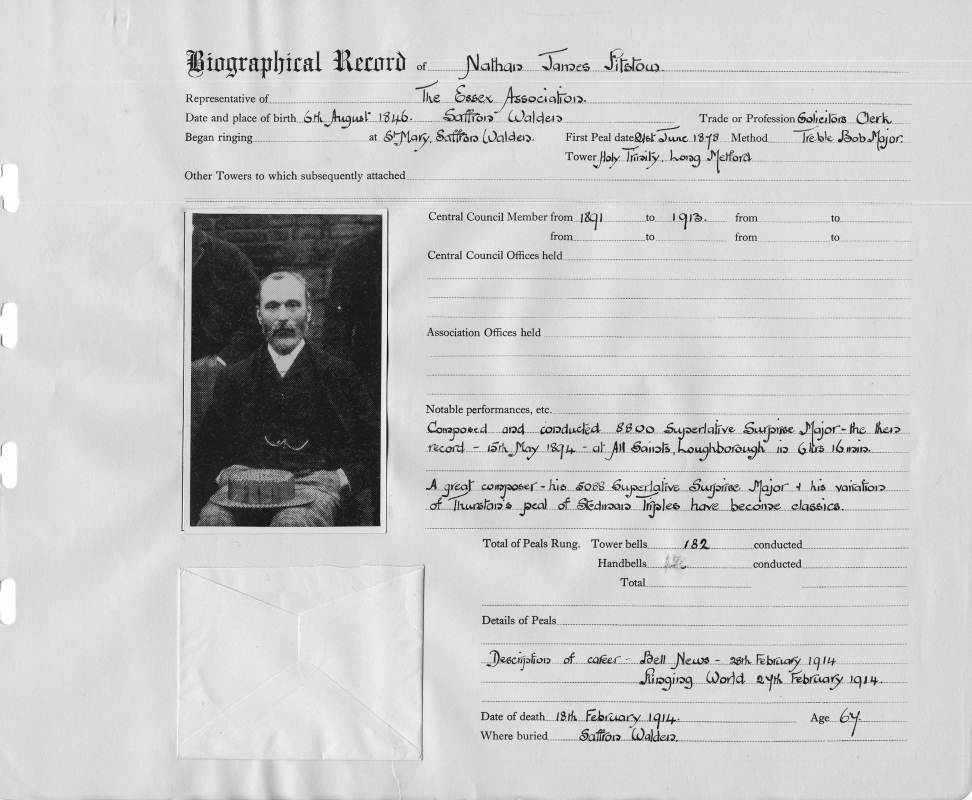 Biographical Record of Nathan James Pitstow.
Representative of The Essex Association.
Date and place of birth 6th August 1846. Saffron Walden Trade or Profession Solicitors Clerk
Began ringing at St Mary, Saffron Walden. First Peal date 21st June 1878 Method Treble Bob Major.
Tower Holy Trinity, Long Melford
Other Towers to which subsequently attached
Central Council Member from 1891 to 1913. from to
from to from to
Central Council Offices held
Association Offices held
Notable performances, etc.
Composed and conducted 8800 Superlative Surprise Major - the then
record - 15th May 1894 - at All Saints, Loughborough in 6 hrs 16 min.
A great composer - his 5088 Superlative Surprise Major + his variation
of Thurstan's peal of Stedman Triples have become classics.
Total of Peals Rung. Tower bells 182 conducted
Handbells conducted
Total
Details of Peals
Description of career - Bell News - 28th February 1914
Ringing World 27th February 1914.
Date of death 18th February 1914. Age 67.
Where buried Saffron Walden.